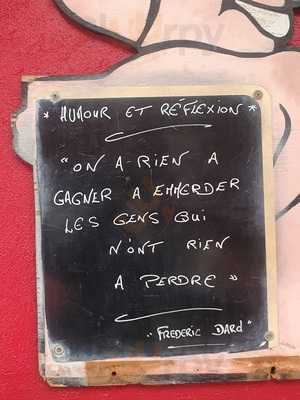 * HUMOUR ET RÉFLEXION *
"ON A RIEN A
GAGNER A EMMERDER
LES GENS QUI
N'ONT RIEN
A PERDRE"
"FREDERIC DARD"